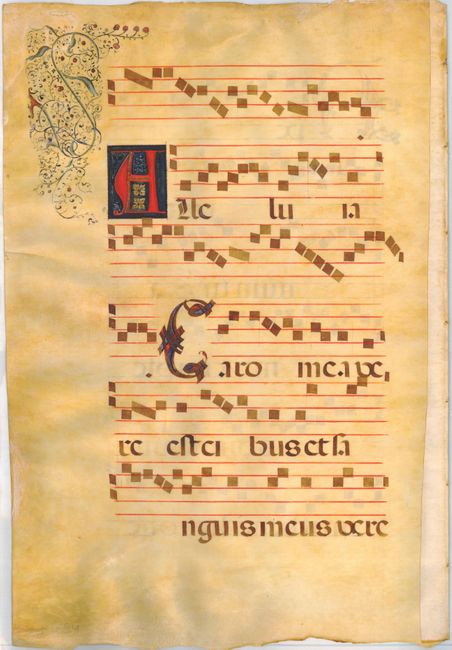 Alle lu ia
Caro mea ve
re est ci bus et sa
nguis meus vere